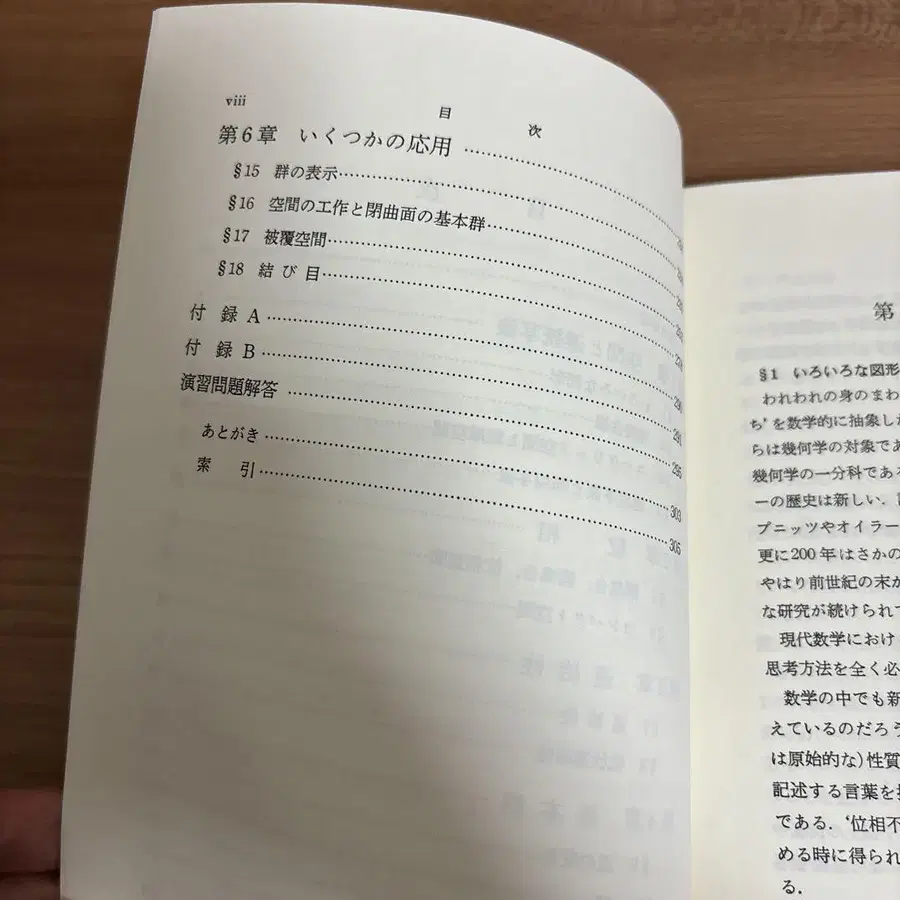 viii
目 次
第6章 いくつかの応用
§15 群の表示
§16 空間の工作と閉曲面の基本群
§17 被覆空間
§18 結び目
付録 A
付録 B
演習問題解答
あとがき 303
索引 305
第
§1 いろいろな図形
われわれの身のまわ
ち’を数学的に抽象し
らは幾何学の対象であ
幾何学の一分科である
ーの歴史は新しい.
プニッツやオイラー
更に200年はさかの
やはり前世紀の末か
な研究が続けられて
現代数学におけ
思考方法を全く必
数学の中でも新
えているのだろう
は原始的な)性質
記述する言葉を
である. ‘位相不
める時に得られ
る.